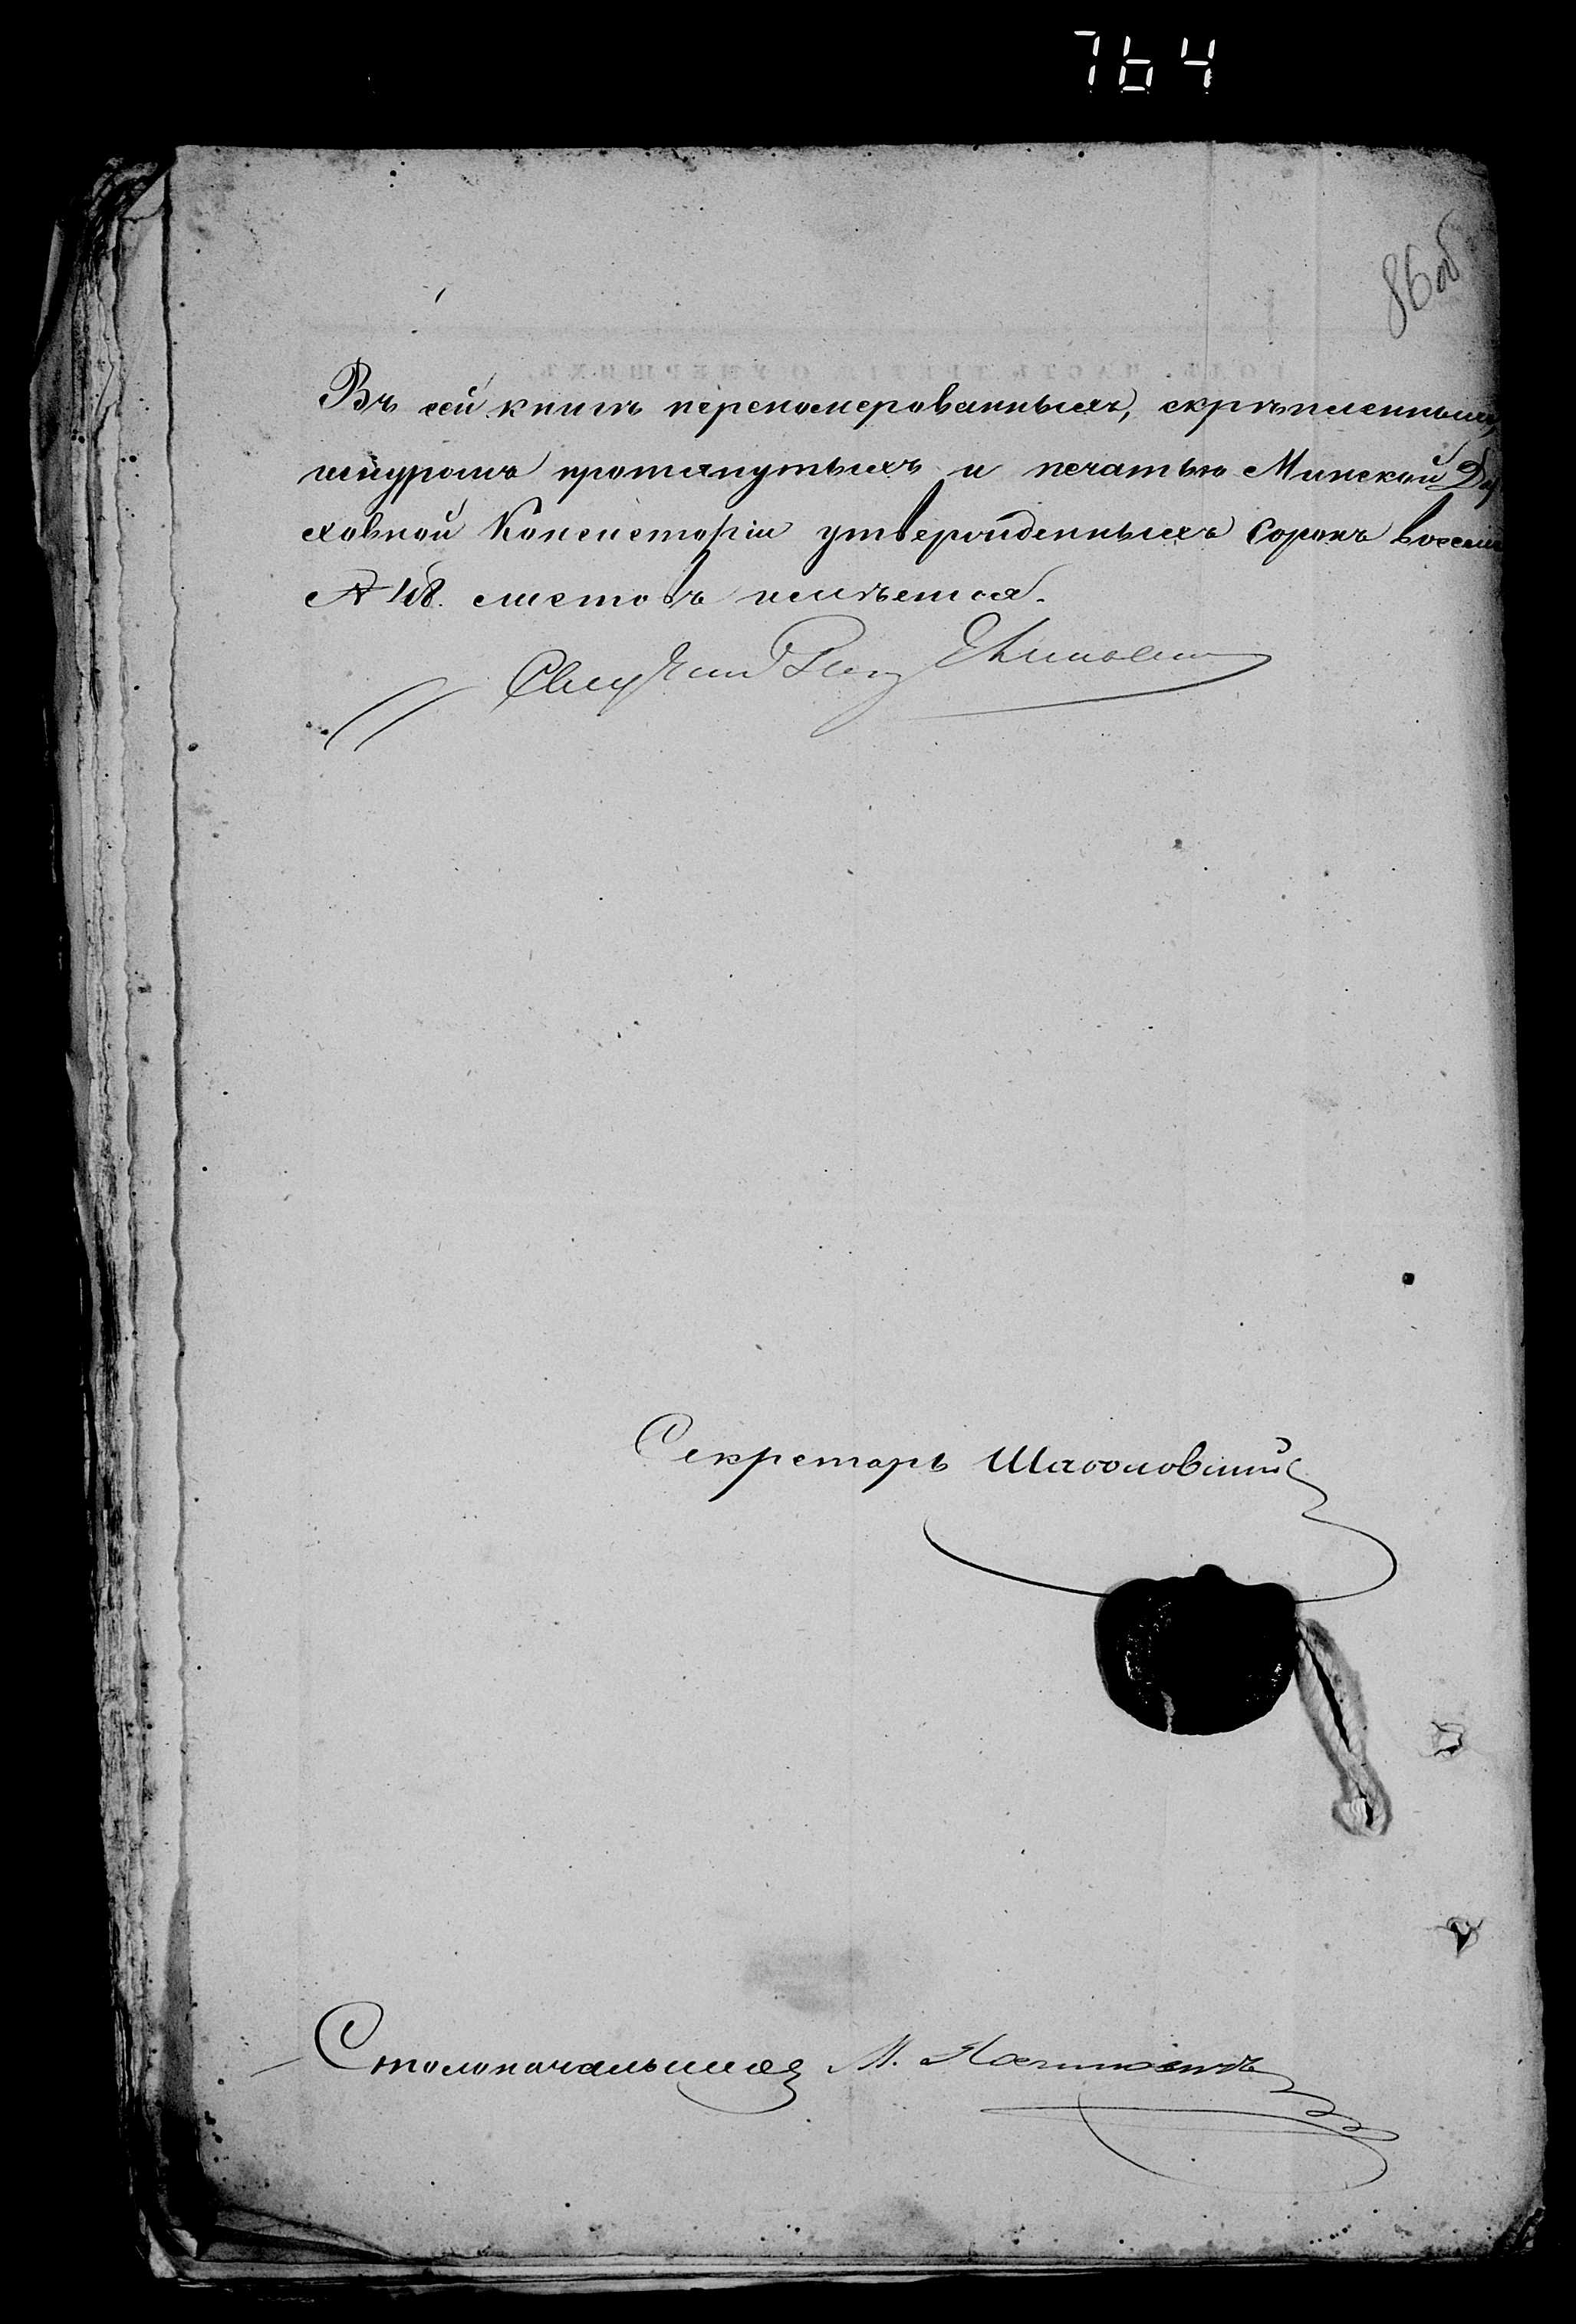 764
86 об
Въ сей книгѣ перепомерованныхъ, скрѣпленныхъ,
шнуромъ протянутыхъ и печатью Минской Ду
ховной Консисторіи утвержденныхъ сорокъ восемь
№ 48. листовъ имѣется.
Секретарь
Столоначальникъ М.